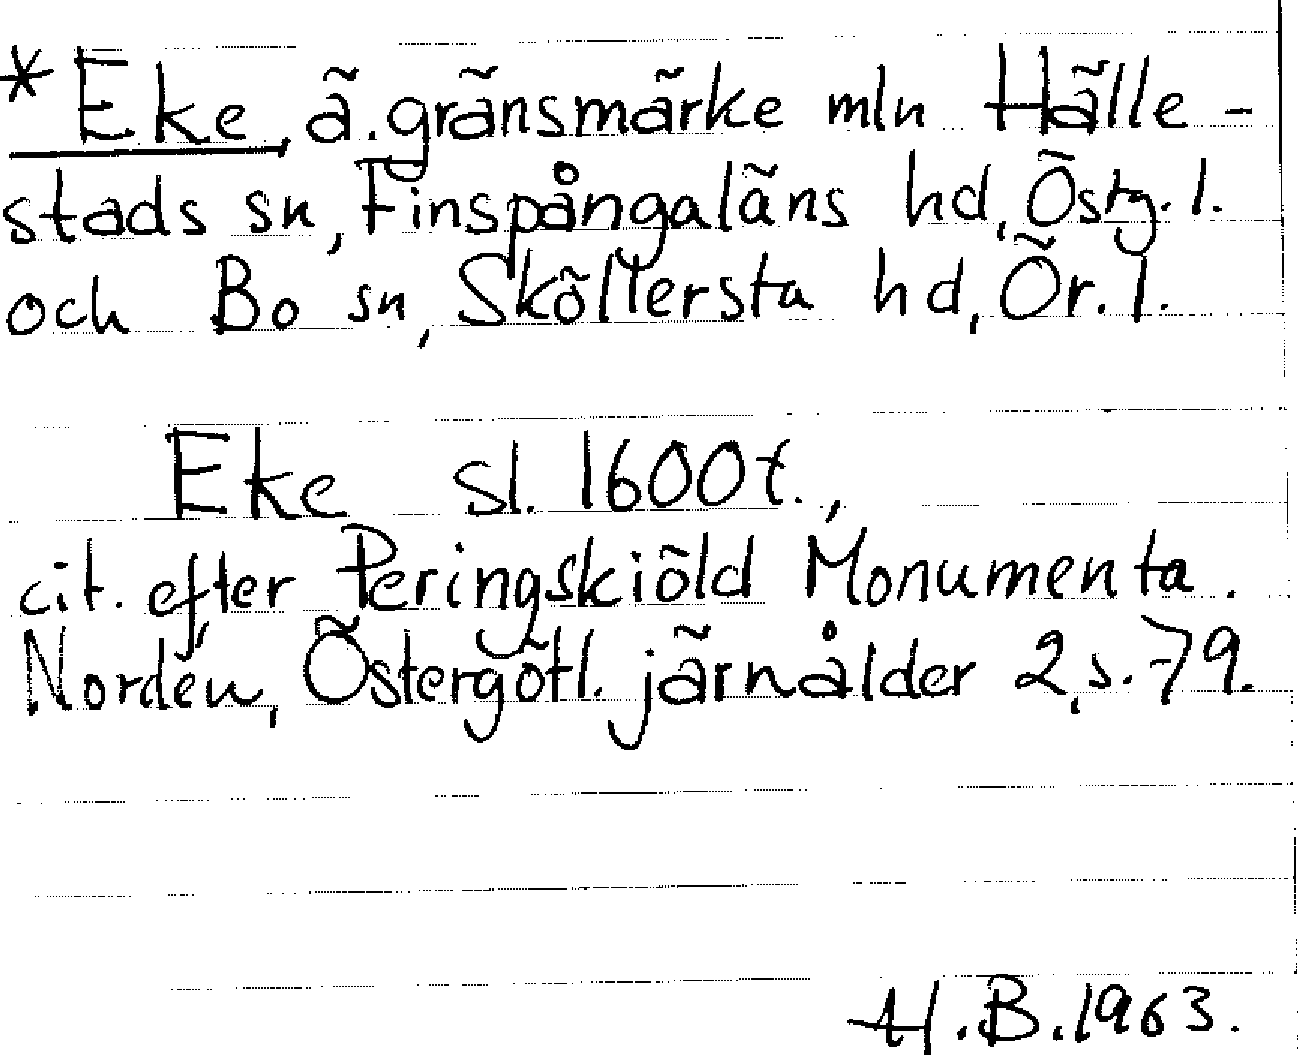 *Eke, ä. gränsmärke mln Hälle-
stads sn, Finspångaläns hd, Östg. l.
och Bo sn, Sköllersta hd, Ör. l.
Eke sl. 1600t.,
cit. efter Peringskiöld Monumenta.
Nordén, Östergötl. järnålder 2, s. 79.
H.B. 1963.